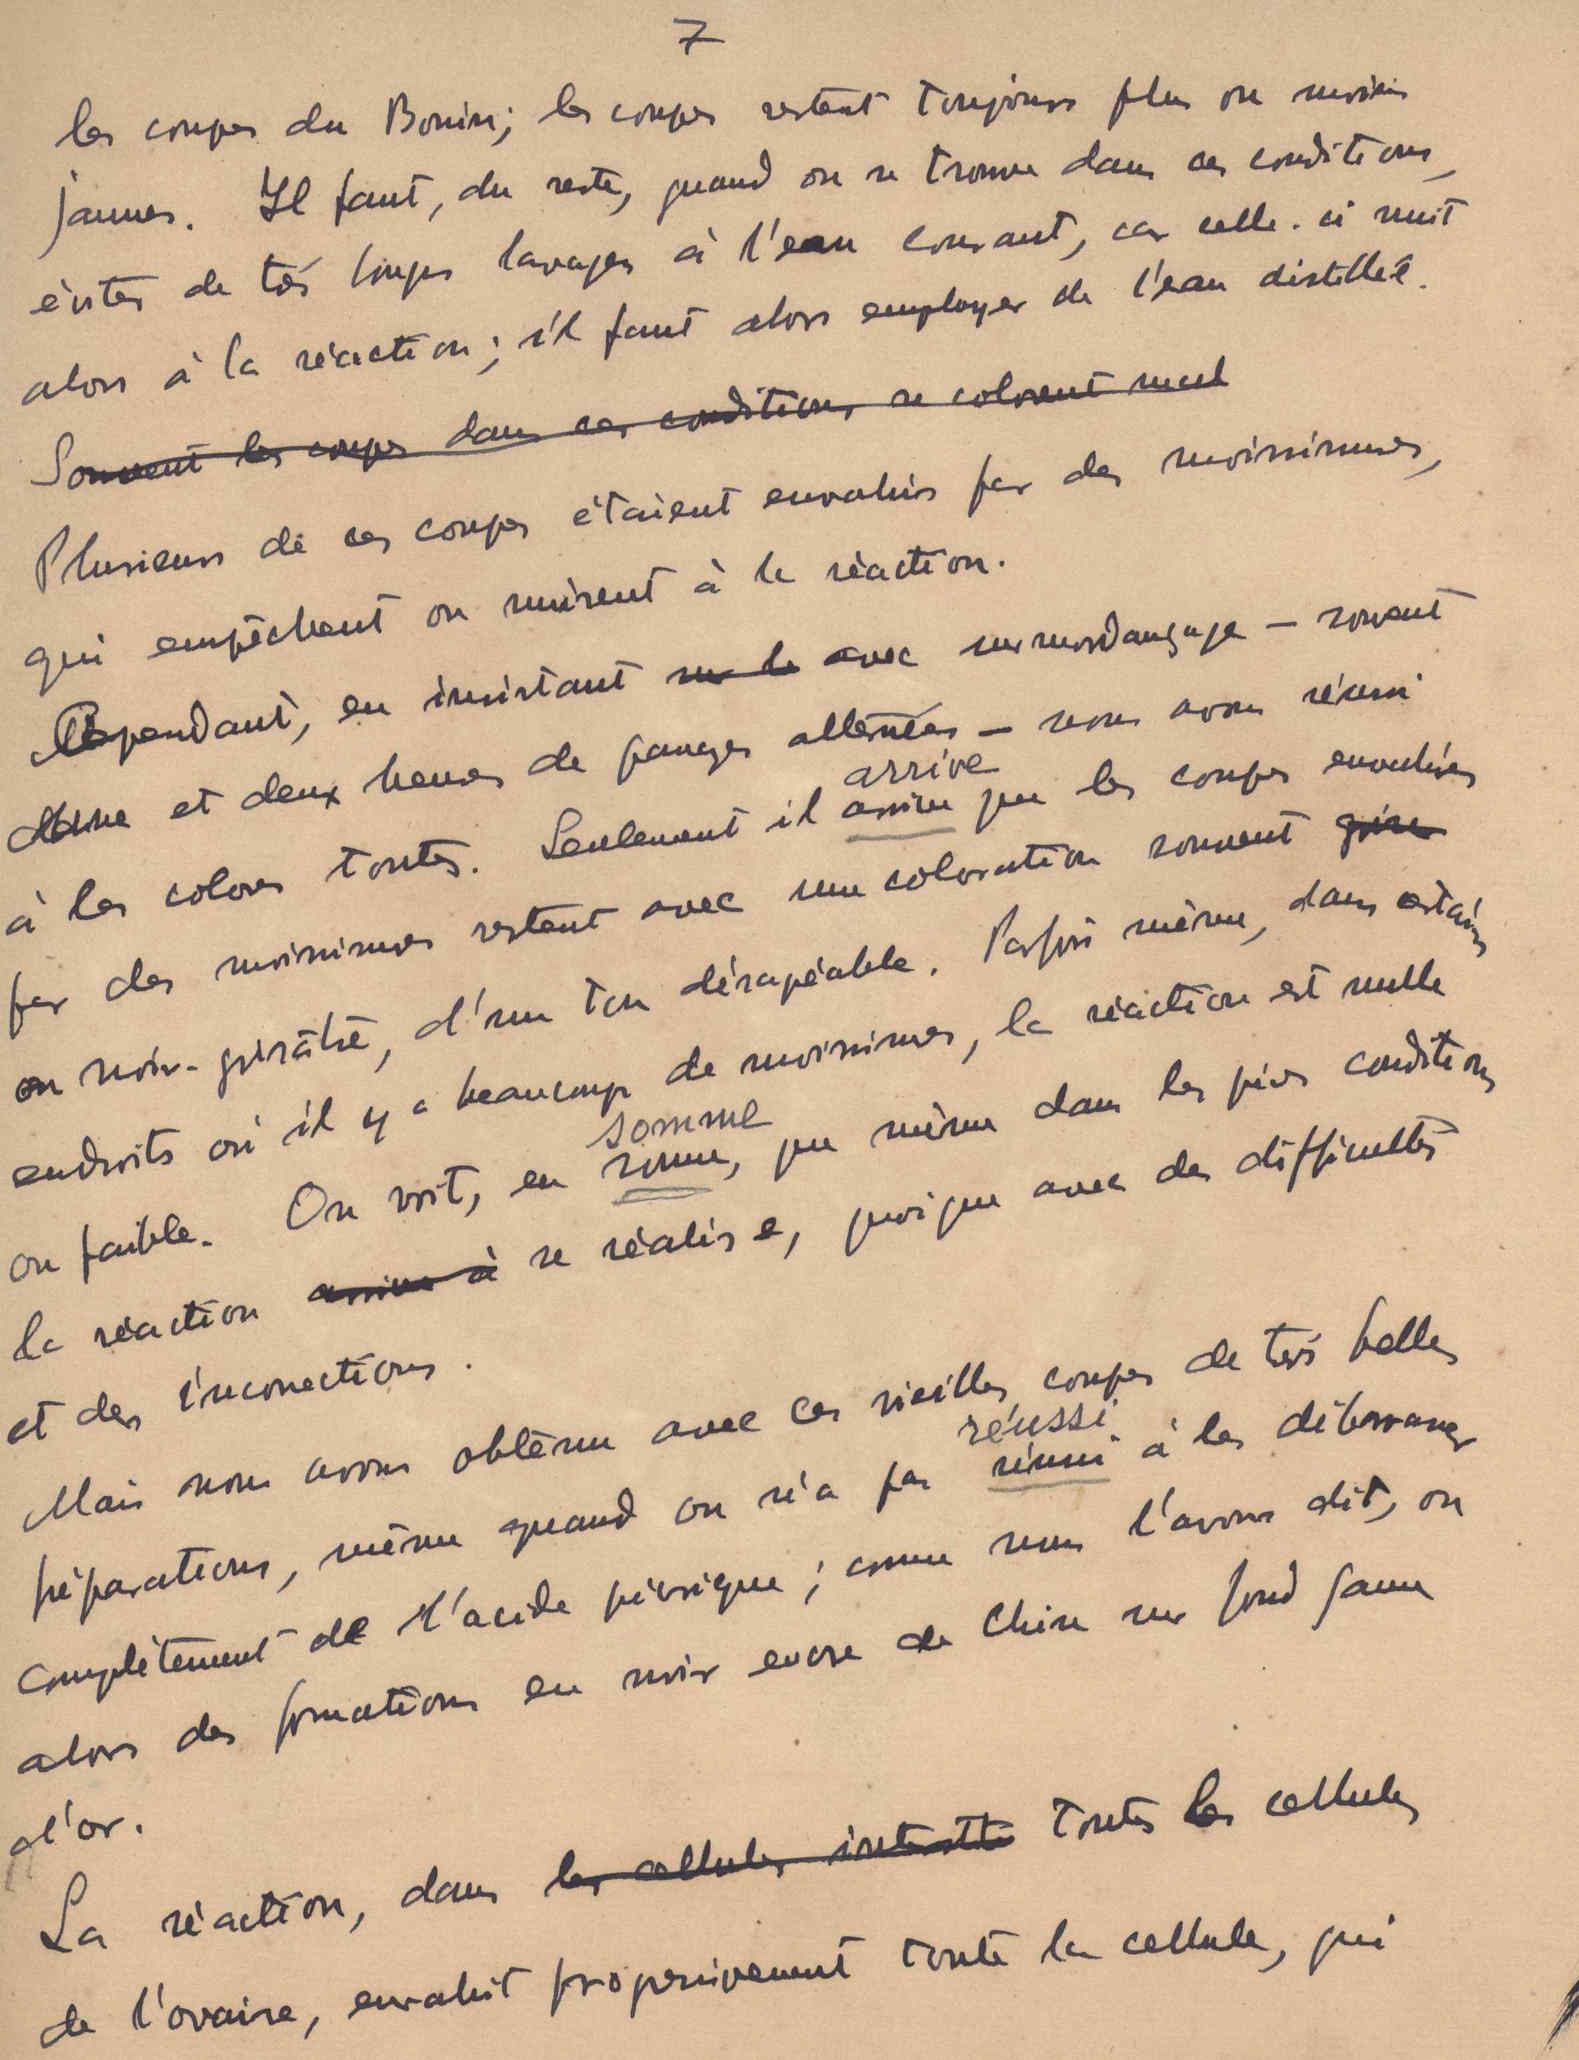 7
les coupes du Bouin; les coupes restent toujours plus ou moins
jaunes. Il faut, du reste, quand on se trouve dans ces conditions,
éviter de très longs lavages à l'eau courant, car celle-ci nuit
alors à la réaction; il faut alors employer de l'eau distillée.
Souvent les coupes dans ces conditions se colorent mal
Plusieurs de ces coupes étaient envahies par des moisissures,
qui empêchent ou nuisent à la réaction.
Cependant, en insistant sur le avec surmordançage — souvent
une et deux heures de passages alternées — nous avons réussi
arrive
à les colorer toutes. Seulement il arrive que les coupes envahies
par des moisissures restent avec une coloration souvent grise
ou noir-grisâtre, d'un ton désagréable. Parfois même, dans certains
endroits où il y a beaucoup de moisissures, la réaction est nulle
somme
ou faible. On voit, en somme, que même dans les pires conditions
la réaction arrive à se réalise, quoique avec des difficultés
et des incorrections.
Mais nous avons obtenu avec ces vieilles coupes de très belles
réussi
préparations, même quand on n'a pas réussi à les débarrasser
complètement de l'acide picrique; comme nous l'avons dit, on
alors des formations en noir encre de Chine sur fond jaune
d'or.
La réaction, dans les cellules toutes les cellules
de l'ovaire, envahit progressivement toute la cellule, qui